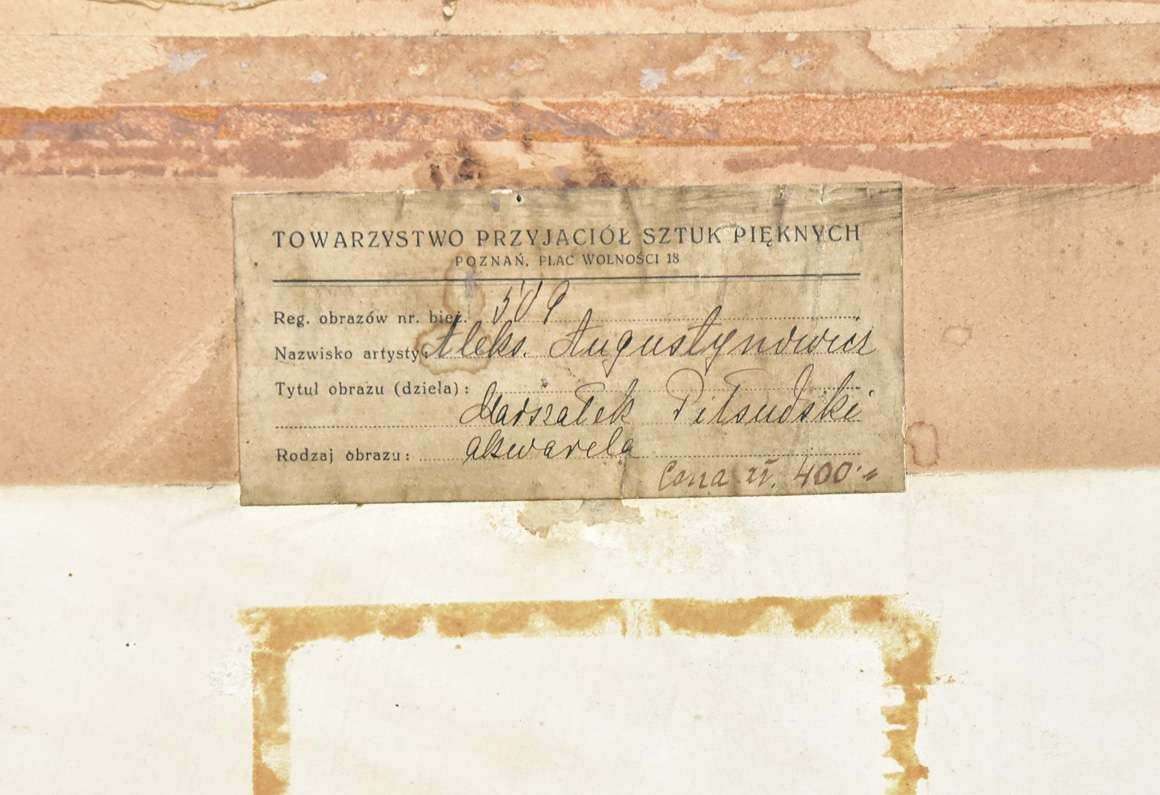 TOWARZYSTWO PRZYJACIÓŁ SZTUK PIĘKNYCH
POZNAŃ, PLAC WOLNOŚCI 18
Reg. obrazów nr. bież. 509
Nazwisko artysty: Aleks. Augustynowicz
Tytuł obrazu (dzieła):
Marszałek Piłsudski
Rodzaj obrazu: akwarela
Cena zł. 400.-